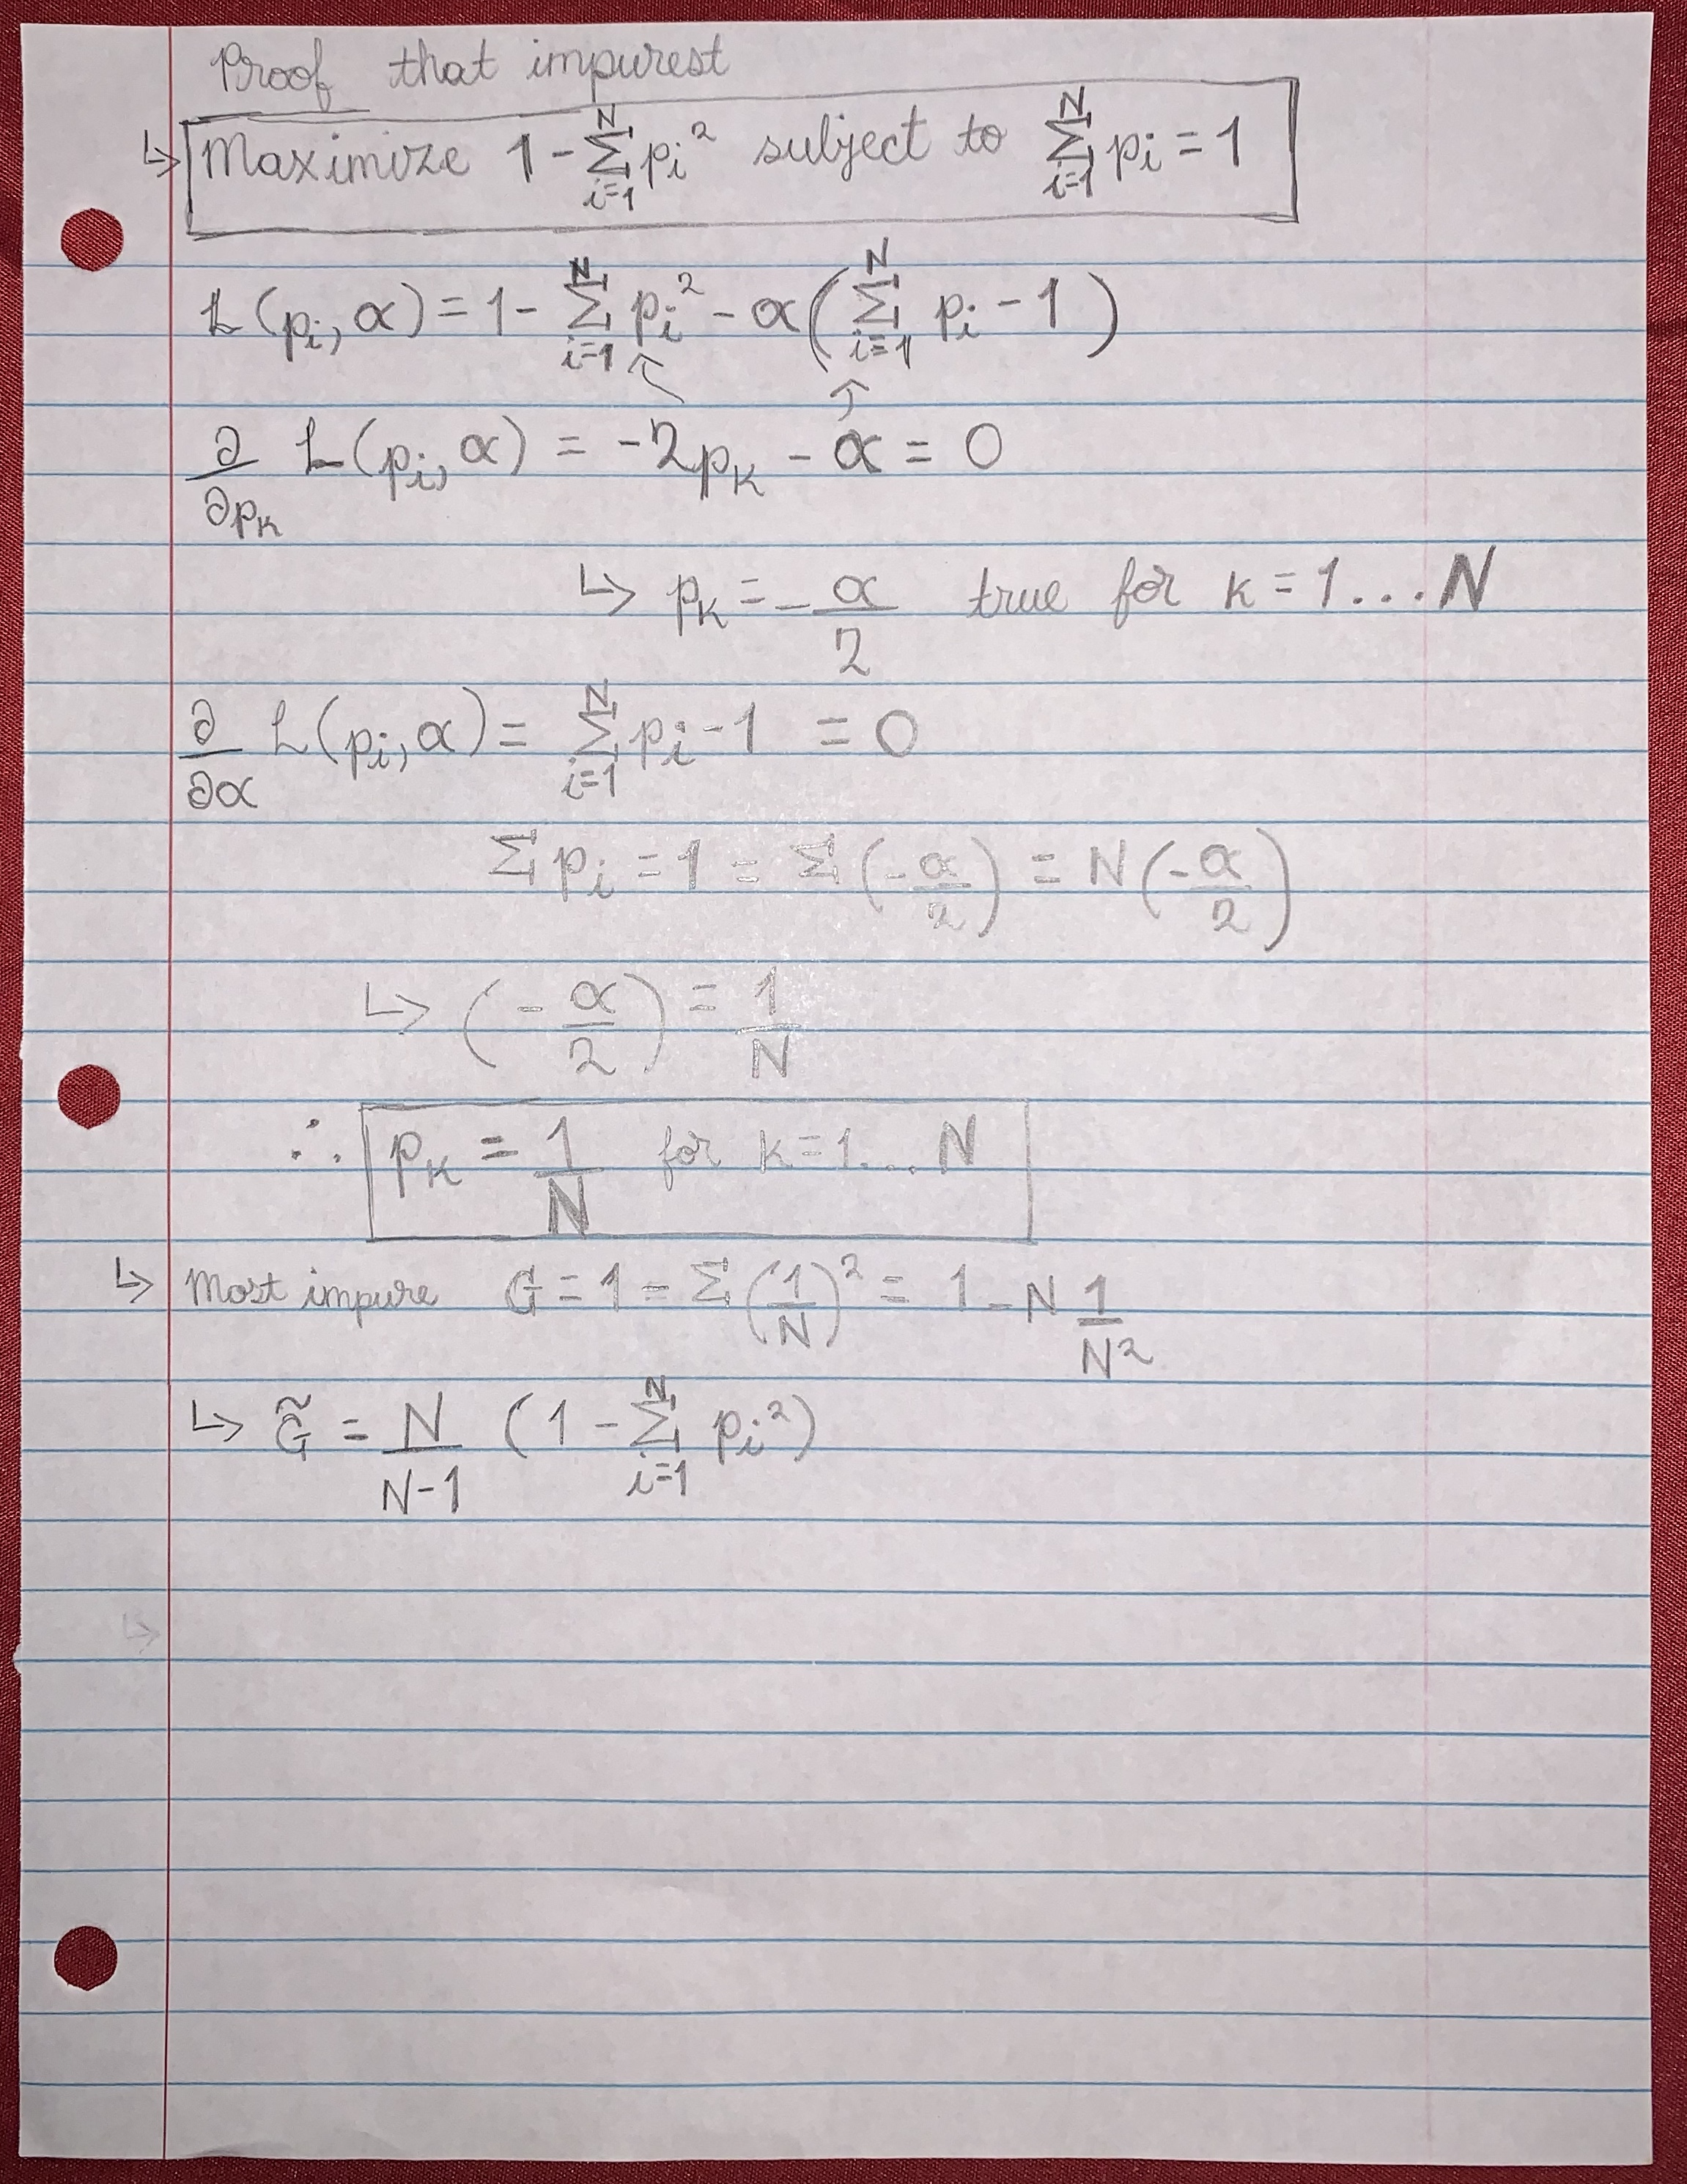 Proof that impurest
↳ Maximize 1 - Σ_{i=1}^{N} p_i² subject to Σ_{i=1}^{N} p_i = 1
L(p_i, α) = 1 - Σ_{i=1}^{N} p_i² - α(Σ_{i=1}^{N} p_i - 1)
∂/∂p_k L(p_i, α) = -2p_k - α = 0
↳ p_k = -α/2 true for k = 1...N
∂/∂α L(p_i, α) = Σ_{i=1}^{N} p_i - 1 = 0
Σ p_i = 1 = Σ(-α/2) = N(-α/2)
↳ (-α/2) = 1/N
∴ p_k = 1/N for k = 1...N
↳ Most impure G = 1 - Σ(1/N)² = 1 - N 1/N²
↳ G̃ = N/(N-1) (1 - Σ_{i=1}^{N} p_i²)
↳